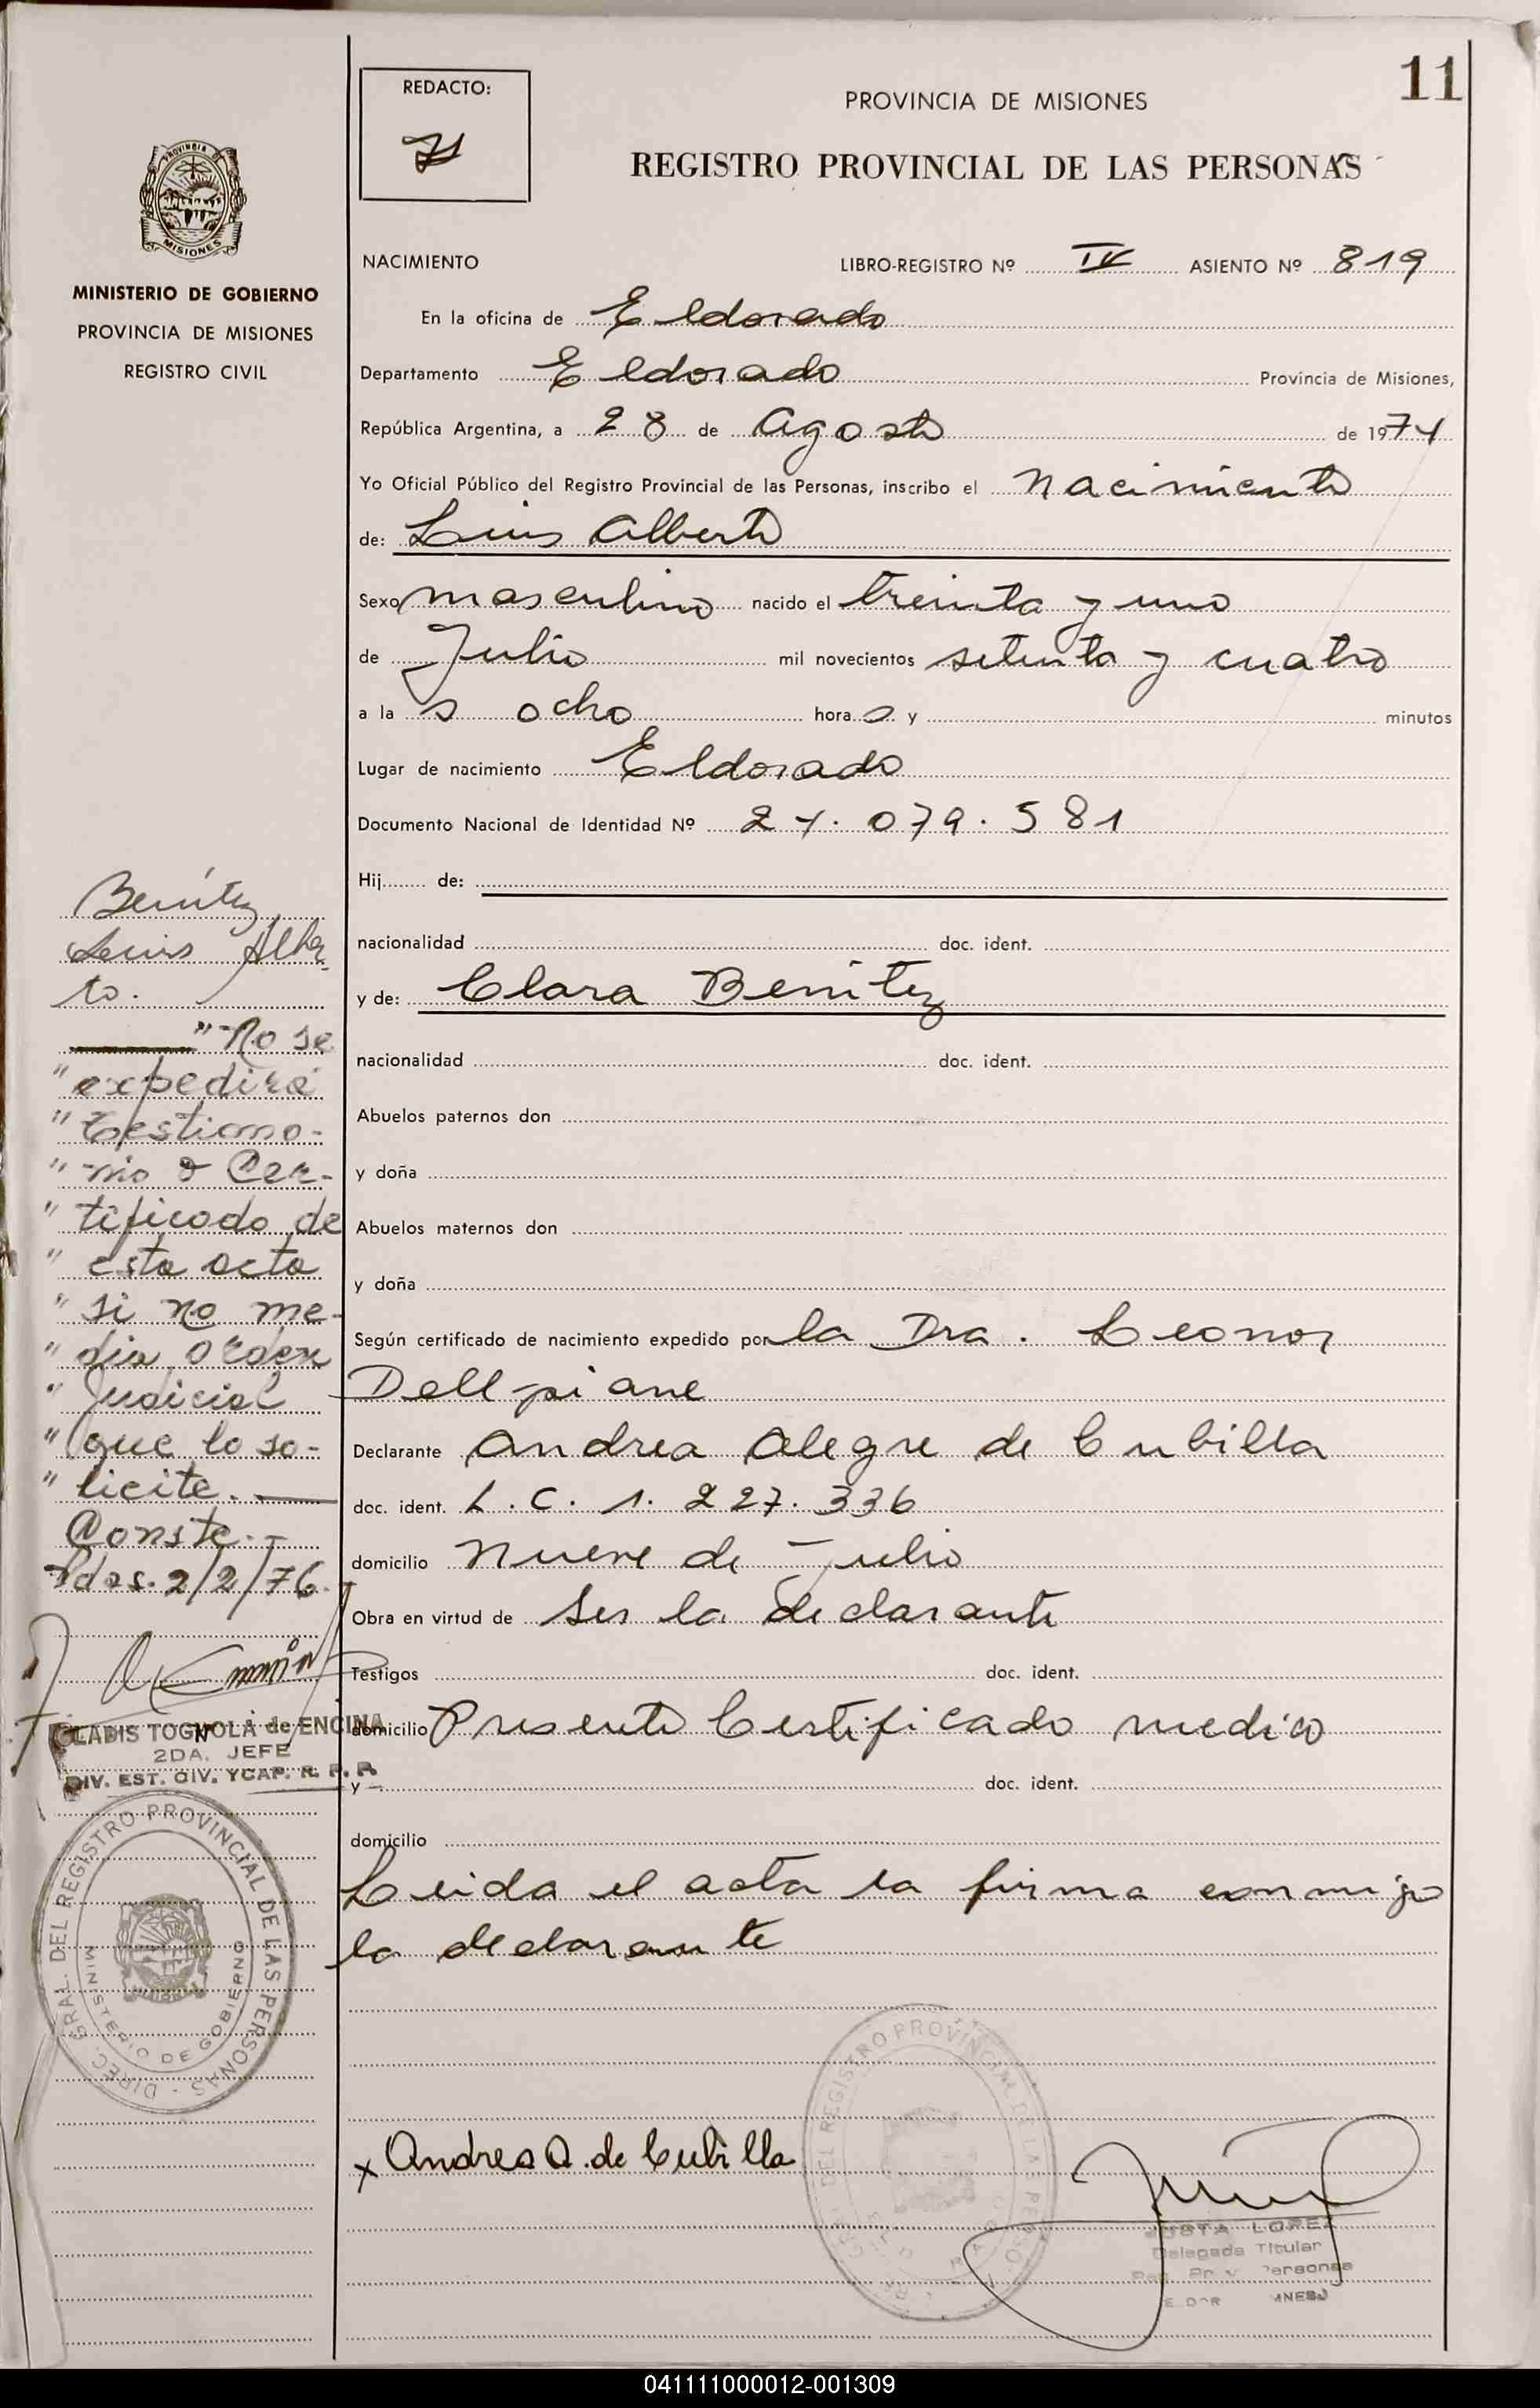 11
REDACTO:
PROVINCIA DE MISIONES
REGISTRO PROVINCIAL DE LAS PERSONAS
PROVINCIA DE
MISIONES
MINISTERIO DE GOBIERNO
PROVINCIA DE MISIONES
REGISTRO CIVIL
NACIMIENTO LIBRO-REGISTRO Nº IV ASIENTO Nº 819
En la oficina de Eldorado
Departamento Eldorado Provincia de Misiones,
República Argentina, a 28 de Agosto de 1974
Yo Oficial Público del Registro Provincial de las Personas, inscribo el Nacimiento
de: Luis Alberto
Sexo masculino nacido el treinta y uno
de Julio mil novecientos setenta y cuatro
a la s ocho hora s y minutos
Lugar de nacimiento Eldorado
Documento Nacional de Identidad Nº 24.079.581
Hij de:
nacionalidad doc. ident.
y de: Clara Benitez
nacionalidad doc. ident.
Abuelos paternos don
y doña
Abuelos maternos don
y doña
Según certificado de nacimiento expedido por la Dra. Leonor
Dellpiane
Declarante Andrea Alegre de Cubilla
doc. ident. L.C. 1.227.336
domicilio Nueve de Julio
Obra en virtud de ser la declarante
Testigos doc. ident.
domicilio Presento Certificado medico
y doc. ident.
domicilio
Leida el acta la firma conmigo
la declarante
x Andrea A. de Cubilla
JUSTA LOPEZ
Delegada Titular
Benítez
Luis Alber-
to.
"No se
"expedirá
"Testimo-
"nio o Cer-
"tificado de
"esta acta
"si no me-
"dia orden
"Judicial
"que lo so-
"licite.
Conste.-
Pdas. 2/2/76.
GLADIS TOGNOLA de ENCINA
2DA. JEFE
DIV. EST. CIV. YCAP. R. P. P.
DIREC. GRAL. DEL REGISTRO PROVINCIAL DE LAS PERSONAS -
MINISTERIO DE GOBIERNO
041111000012-001309